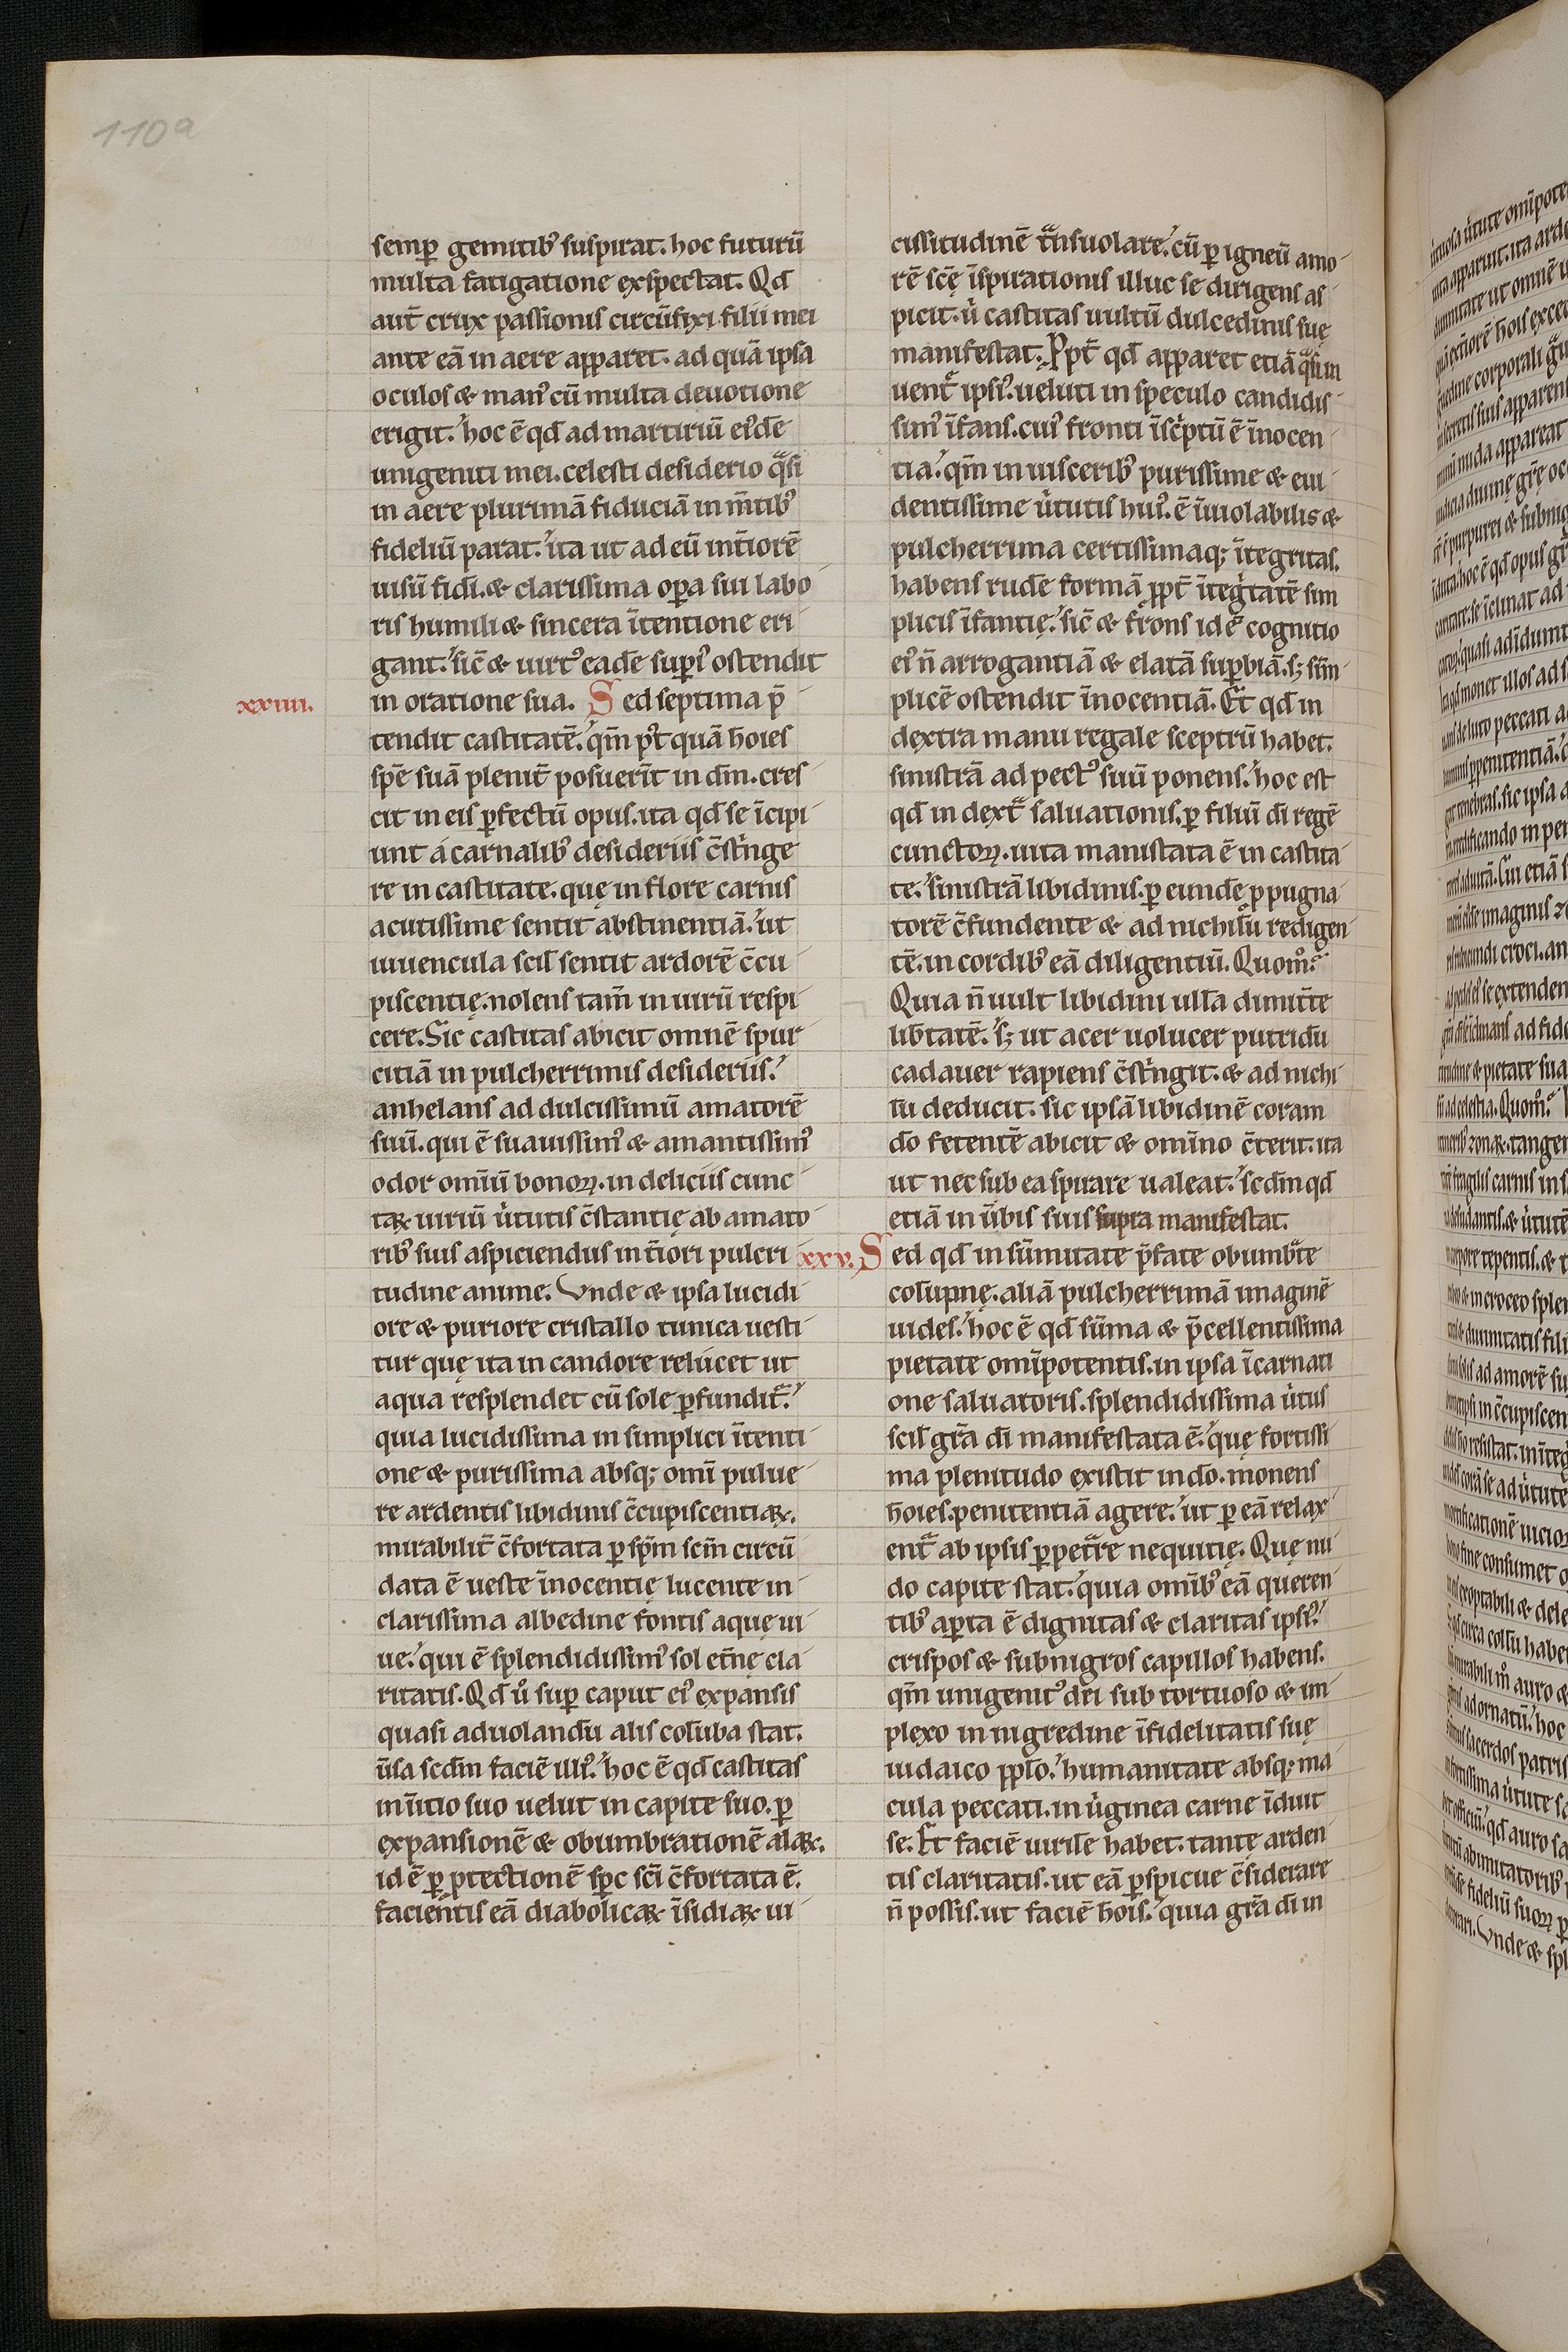 110a
semꝑ gemitib᷒ suspirat. hoc futurū
multa fatigatione exspectat. Qđ
aut̄ crux passionis circūfixi filii mei
ante eā in aere apparet. ad quā ipsa
oculos & man᷒ cū multa deuotione
erigit.' hoc ē qđ ad martiriū ei᷒dē
unigeniti mei. celesti desiderio qᵃsi
in aere plurimā fiduciā in m̄tib᷒
fideliū parat.' ita ut ad eū int̄iorē
uisū fidı̄. & clarissima oꝑa sui labo
ris humili & sincera ı̄tentione eri
gant.' sic̄ & uirt᷒ eadē suꝑi᷒ ostendit
xxiiii.
in oratione sua. Sed septima p̄
tendit castitatē.' qm̄ p᷒t quā hōies
spē suā plenit̄ posuerı̄t in dm̄. cres
cit in eis ꝑfectū opus. ita qđ se ı̄cipi
unt á carnalib᷒ desideriis c̄stⁱnge
re in castitate. quę in flore carnis
acutissime sentit abstinentiā.' ut
iuuencula scil̄ sentit ardorē c̄cu
piscentię. nolens tam̄ in uirū respi
cere. Sic castitas abicit omnē spur
citiā in pulcherrimis desideriis.'
anhelans ad dulcissimū amatorē
suū. qui ē suauissim᷒ & amantissim᷒
odor omı̄ū bonoꝝ. in deliciis cunc
taꝝ uiriū ùtutis c̄stantię ab amato
rib᷒ suis aspiciendus in t̄iori pulcri
tudine anime. Vnde & ipsa lucidi
ore & puriore cristallo tunica uesti
tur quę ita in candore relucet ut
aqua resplendet cū sole ꝑfundit᷑.'
quia lucidissima in simplici ı̄tenti
one & purissima absq; omı̄ pulue
re ardentis libidinis c̄cupiscentiaꝝ.
mirabilit̄ c̄fortata ꝑ spm̄ scm̄ circū
data ē ueste ı̄nocentię lucente in
clarissima albedine fontis aquę ui
ue.' qui ē splendidissim᷒ sol et̄nę cla
ritatis. Qđ ů suꝑ caput ei᷒ expansis
quasi aduolandū alis colūba stat.
ūsa scdm̄ faciē illi᷒.' hoc ē qđ castitas
inı̄tio suo uelut in capite suo. ꝑ
expansionē & obumbrationē alaꝝ.
id ē ꝑ ꝓtectionē spc scı̄ c̄fortata ē.
facientis eā diabolicaꝝ ı̄sidiaꝝ ui
cissitudinē tᵃnsuolare.' cū ꝑ igneū amo
rē scę ı̄spirationis illuc se dirigens as
picit. ů castitas uultū dulcedinis suę
manifestat. Ppt̄ qđ apparet etiā qᵃsi in
uent᷑ ipsi᷒. ueluti in speculo candidis
sim᷒ ı̄fans. cui᷒ fronti ı̄scⁱptū ē ı̄nocen
tia.' qm̄ in uiscerib᷒ purissime & eui
dentissime ùtutis hui᷒. ē ı̄uiolabilis &
pulcherrima certissimaq; ı̄tegritas.
habens rudē formā ꝓpt̄ ı̄tegⁱtatē sim
plicis ı̄fantię.' sic̄ & frons id ē cognitio
ei᷒ n̄ arrogantiā & elatā suꝑbiā. s; sim̄
plicē ostendit ı̄nocentiā. Et qđ in
dextra manu regale sceptrū habet.
sinistrā ad pect᷒ suū ponens.' hoc est
qđ in dextᵃ saluationis. ꝑ filiū dı̄ regē
cunctoꝝ. uita manistata ē in castita
te.' sinistrā libidinis. ꝑ eundē ꝓpugna
torē c̄fundente & ad nichilū redigen
tē. in cordib᷒ eā diligentiū. Quom᷒.
Quia n̄ uult libidini ulla dimitte
lib̄tatē.' s; ut acer uolucer putridū
cadauer rapiens c̄stⁱngit. & ad nichi
lū deducit. sic ipsā libidinē coram
dō fetentē abicit & omı̄no c̄terit. ita
ut nec sub ea spirare ualeat.' scdm̄ qđ
etiā in ůbis suis supra manifestat.
xxv. Sed qđ in sūmitate p̄fate obumbᵃte
colūpnę. aliā pulcherrimā imaginē
uides.' hoc ē qđ sūma & p̄cellentissima
pietate omı̄potentis. in ipsa ı̄carnati
one saluatoris. splendidissima ùtus
scil̄ grā dı̄ manifestata ē.' quę fortissi
ma plenitudo existit in dō. monens
hōies. penitentiā agere.' ut ꝑ eā relax
ent᷑ ab ipsis ꝑpetᵃte nequitię. Quę nu
do capite stat.' quia omı̄b᷒ eā queren
tib᷒ aꝑta ē dignitas & claritas ipsi᷒.'
crispos & subnigros capillos habens.
qm̄ unigenit᷒ dei sub tortuoso & im
plexo in nigredine ı̄fidelitatis suę
iudaico ppl̄o.' humanitate absq; ma
cula peccati. in ůginea carne ı̄duit
se. Et faciē uirilē habet. tantę arden
tis claritatis. ut eā ꝑspicue c̄siderare
n̄ possis. ut faciē hōis.' quia grā dı̄ in